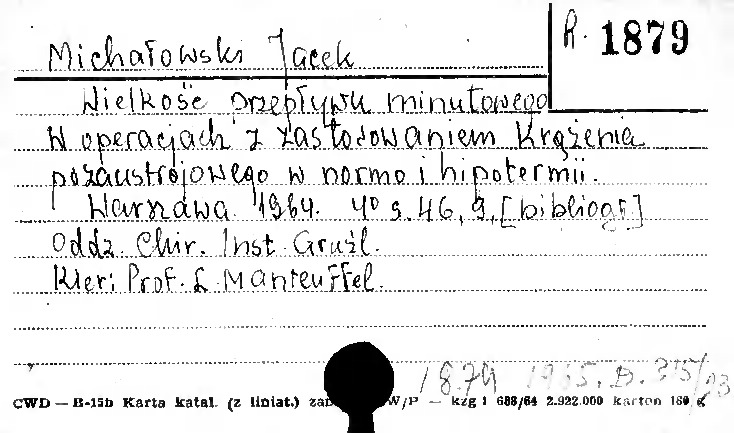 R. 1879
Michałowski Jacek
Wielkość przepływu minutowego
w operacjach z zastosowaniem krążenia
pozaustrojowego w normo i hipotermii.
Warszawa 1964. 4° s. 46, 9, [bibliogr]
Oddz. Chir. Inst. Gruźl.
Kier: Prof. L. Manteuffel.
1879 1965. B. 315/23
CWD — B-15b Karta katal. (z liniat.) W/P — kzg 1 688/64 2.922.000 karton 180 g